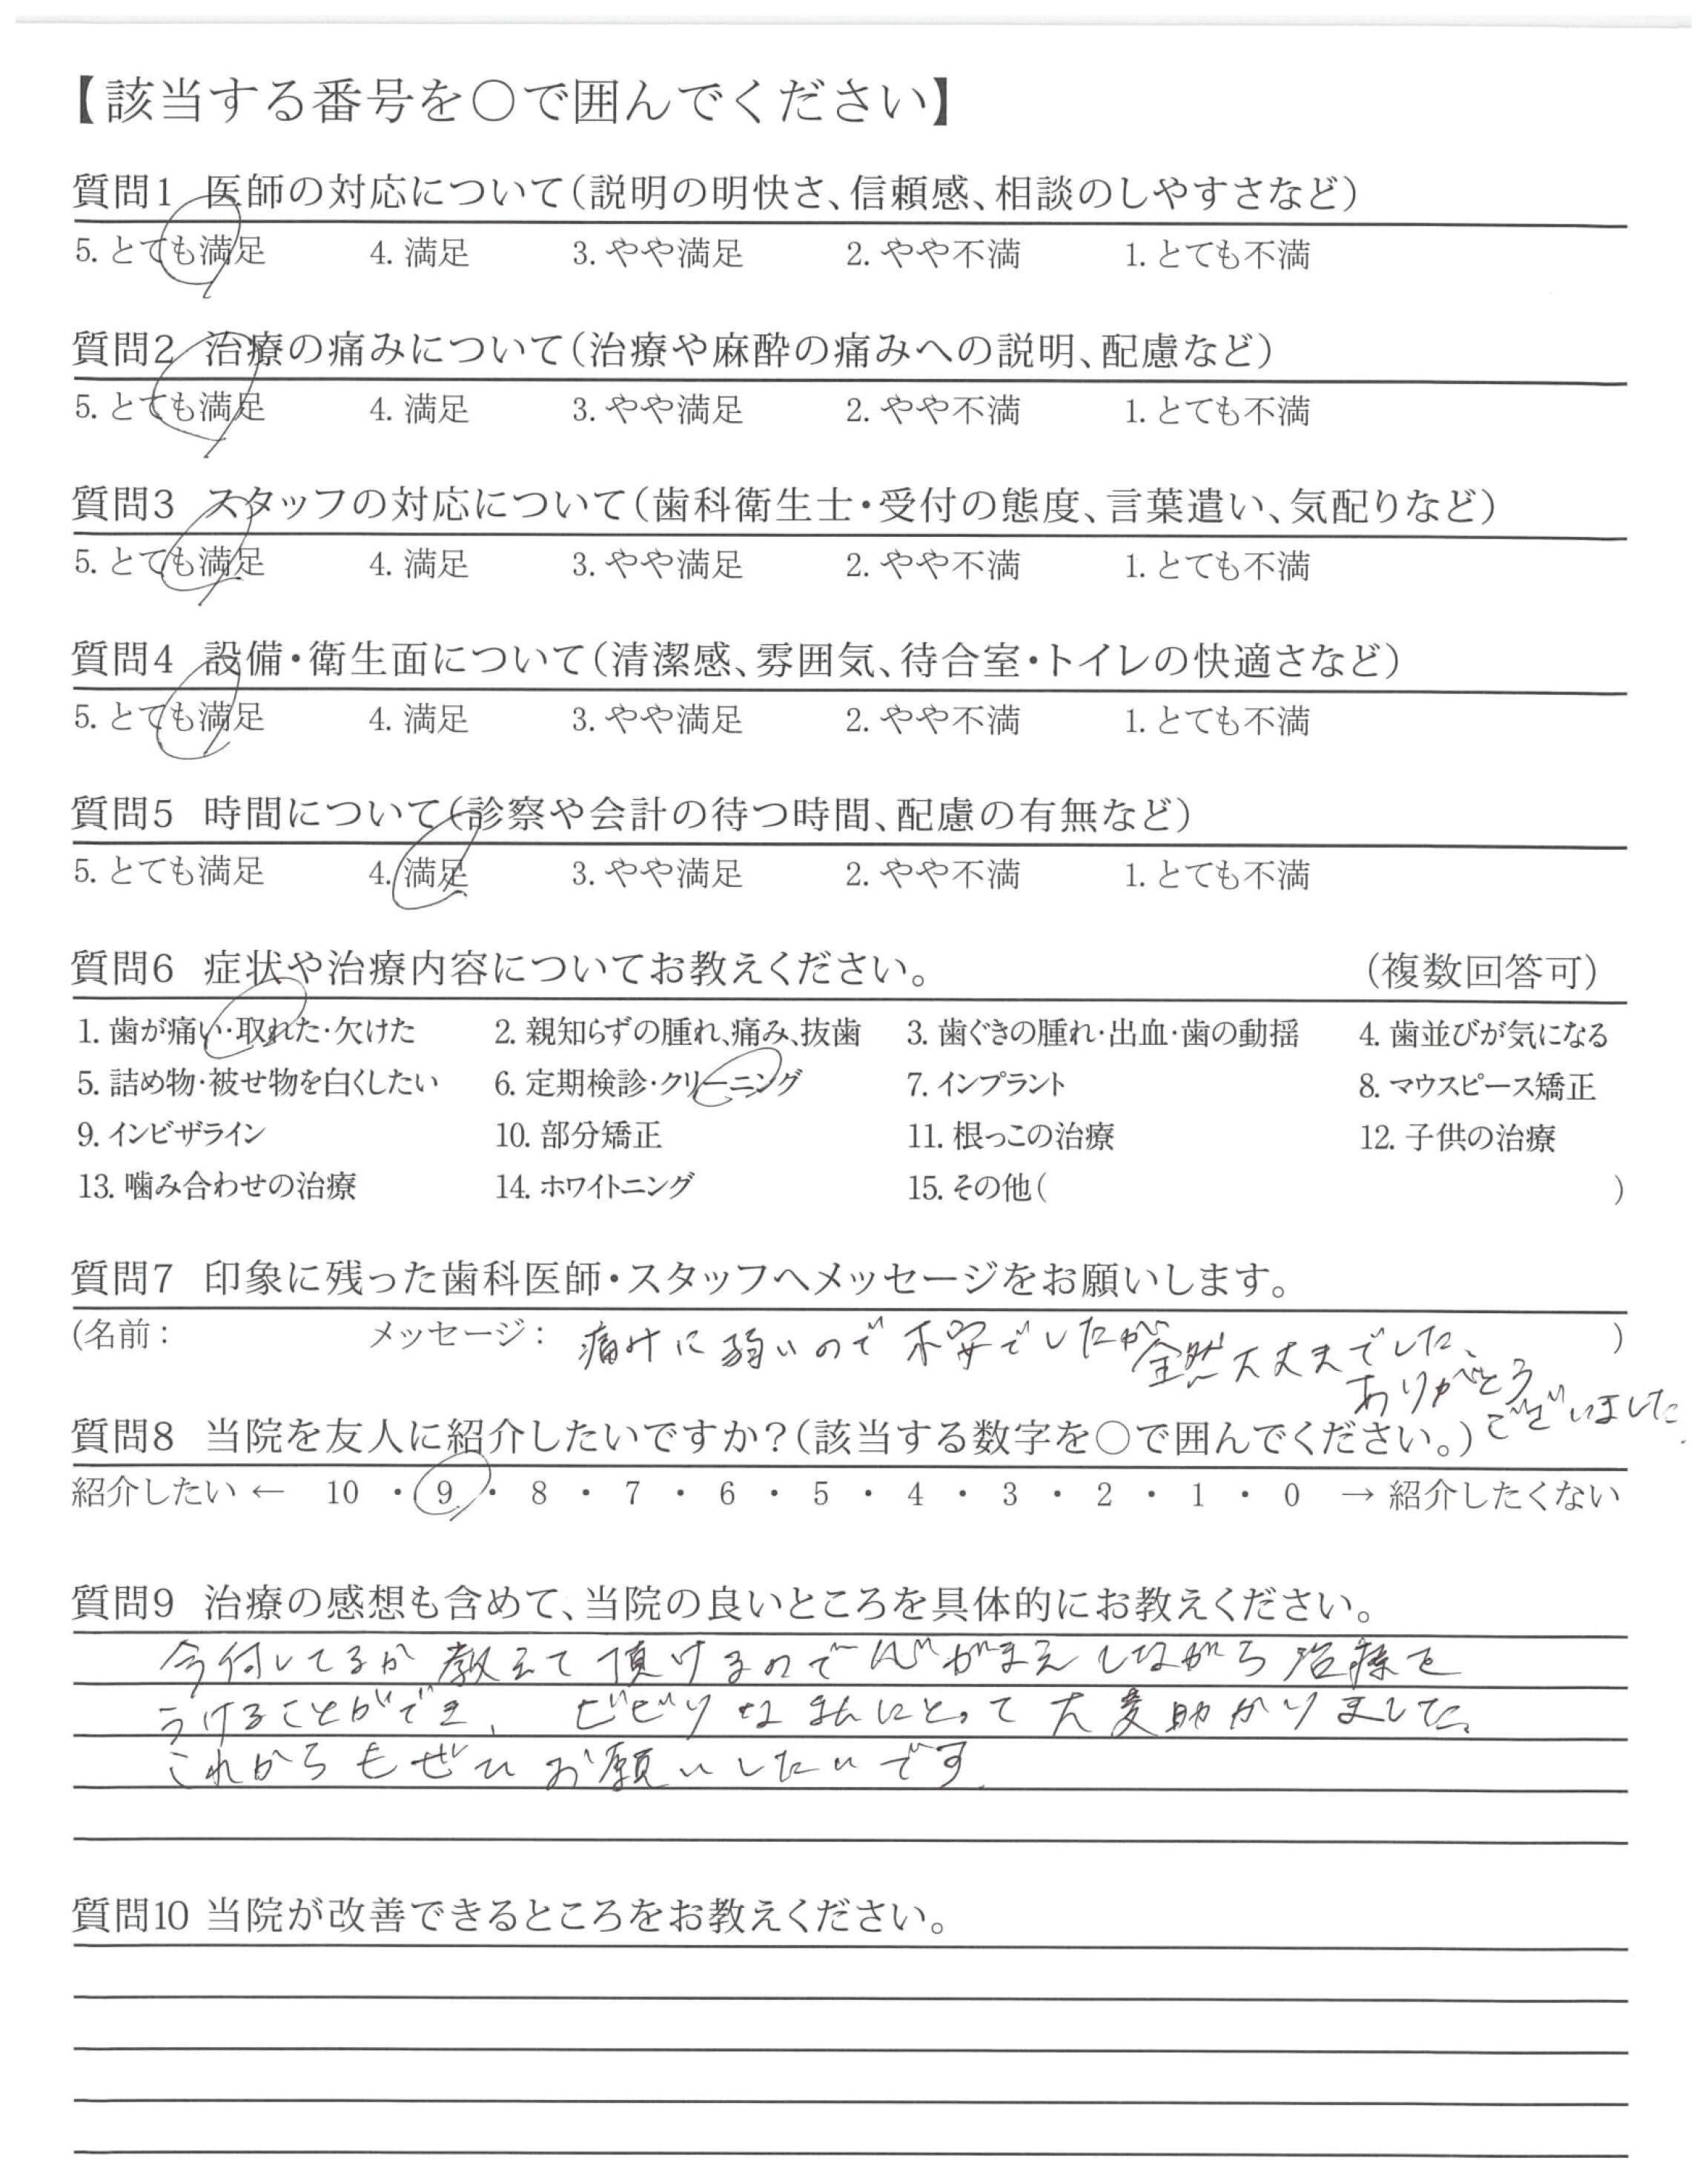 【該当する番号を○で囲んでください】
質問1 医師の対応について(説明の明快さ、信頼感、相談のしやすさなど)
5. とても満足 4. 満足 3. やや満足 2. やや不満 1. とても不満
質問2 治療の痛みについて(治療や麻酔の痛みへの説明、配慮など)
5. とても満足 4. 満足 3. やや満足 2. やや不満 1. とても不満
質問3 スタッフの対応について(歯科衛生士・受付の態度、言葉遣い、気配りなど)
5. とても満足 4. 満足 3. やや満足 2. やや不満 1. とても不満
質問4 設備・衛生面について(清潔感、雰囲気、待合室・トイレの快適さなど)
5. とても満足 4. 満足 3. やや満足 2. やや不満 1. とても不満
質問5 時間について(診察や会計の待つ時間、配慮の有無など)
5. とても満足 4. 満足 3. やや満足 2. やや不満 1. とても不満
質問6 症状や治療内容についてお教えください。 (複数回答可)
1. 歯が痛い・取れた・欠けた 2. 親知らずの腫れ、痛み、抜歯 3. 歯ぐきの腫れ・出血・歯の動揺 4. 歯並びが気になる
5. 詰め物・被せ物を白くしたい 6. 定期検診・クリーニング 7. インプラント 8. マウスピース矯正
9. インビザライン 10. 部分矯正 11. 根っこの治療 12. 子供の治療
13. 噛み合わせの治療 14. ホワイトニング 15. その他( )
質問7 印象に残った歯科医師・スタッフへメッセージをお願いします。
(名前: メッセージ: 痛みに弱いので不安でしたが全然大丈夫でした。 )
ありがとう
ございました
質問8 当院を友人に紹介したいですか?(該当する数字を○で囲んでください。)
紹介したい ← 10 ・ 9 ・ 8 ・ 7 ・ 6 ・ 5 ・ 4 ・ 3 ・ 2 ・ 1 ・ 0 → 紹介したくない
質問9 治療の感想も含めて、当院の良いところを具体的にお教えください。
今何してるか教えて頂けるので心がまえしながら治療を
うけることができ、ビビりなにとって大変助かりました。
これからもぜひお願いしたいです。
質問10 当院が改善できるところをお教えください。